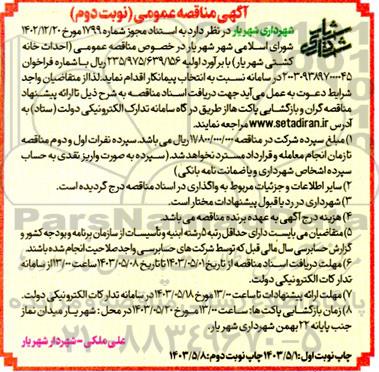 آگهی مناقصه عمومی (نوبت دوم)
شهرداری شهریار در نظر دارد به استناد مجوز شماره ۱۷۹۹ مورخ ۱۴۰۲/۱۲/۲۰
شورای اسلامی شهر شهریار در خصوص مناقصه عمومی (احداث خانه
کشتی شهریار) با برآورد اولیه ۲۳۵/۹۷۵/۶۳۹/۷۵۶ ریال با شماره فراخوان
۲۰۰۳۰۹۳۸۹۷۰۰۰۰۴۵ در سامانه نسبت به انتخاب پیمانکار اقدام نماید. لذا از متقاضیان واجد
شرایط دعوت به عمل می آید جهت دریافت اسناد مناقصه به شرح ذیل تا ارائه پیشنهاد
مناقصه گران و بازگشایی پاکت ها از طریق در گاه سامانه تدارک الکترونیکی دولت (ستاد) به
آدرس www.setadiran.ir مراجعه نمایند.
۱) مبلغ سپرده شرکت در مناقصه ۱۱/۸۰۰/۰۰۰/۰۰۰ ریال می باشد. سپرده نفرات اول و دوم مناقصه
تا زمان انجام معامله و قرارداد مسترد نخواهد شد. (سپرده به صورت واریز نقدی به حساب
سپرده اشخاص شهرداری و یا ضمانت نامه بانکی)
۲) سایر اطلاعات و جزئیات مربوط به واگذاری در اسناد مناقصه درج گردیده است.
۳) شهرداری در رد یا قبول پیشنهادات مختار است.
۴) هزینه درج آگهی به عهده برنده مناقصه می باشد.
۵) متقاضیان می بایست دارای حداقل رتبه ۵ رشته ابنیه و تأسیسات از سازمان برنامه و بودجه کشور و
گزارش حسابرسی سال مالی قبل که توسط شرکت های حسابرسی واجد صلاحیت انجام شده باشند.
۶) مهلت دریافت اسناد مناقصه از تاریخ ۱۴۰۳/۰۵/۰۱ تا تاریخ ۱۴۰۳/۰۵/۰۸ ساعت ۱۳/۰۰ از سامانه
تدارکات الکترونیکی دولت.
۷) مهلت ارائه پیشنهادات تا ساعت ۱۳/۰۰ مورخ ۱۴۰۳/۰۵/۱۸ در سامانه تدارکات الکترونیکی دولت.
۸) زمان بازگشایی پاکت ها: ساعت ۱۳/۰۰ مورخ ۱۴۰۳/۰۵/۲۰ در محل: شهریار میدان نماز
جنب پایانه ۲۲ بهمن شهرداری شهریار.
علی ملکی - شهردار شهریار
چاپ نوبت اول: ۱۴۰۳/۵/۱ چاپ نوبت دوم: ۱۴۰۳/۵/۸
۰۲۱-۸۸۳۴۹۶۷۰-۵